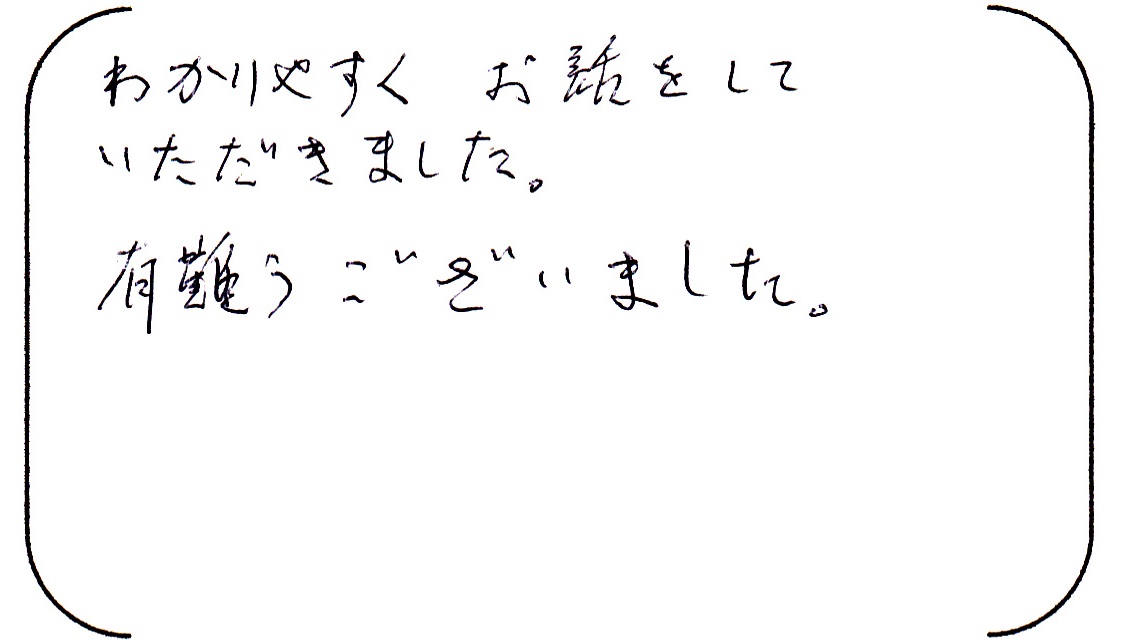 わかりやすく お話をして
いただきました。
有難うございました。